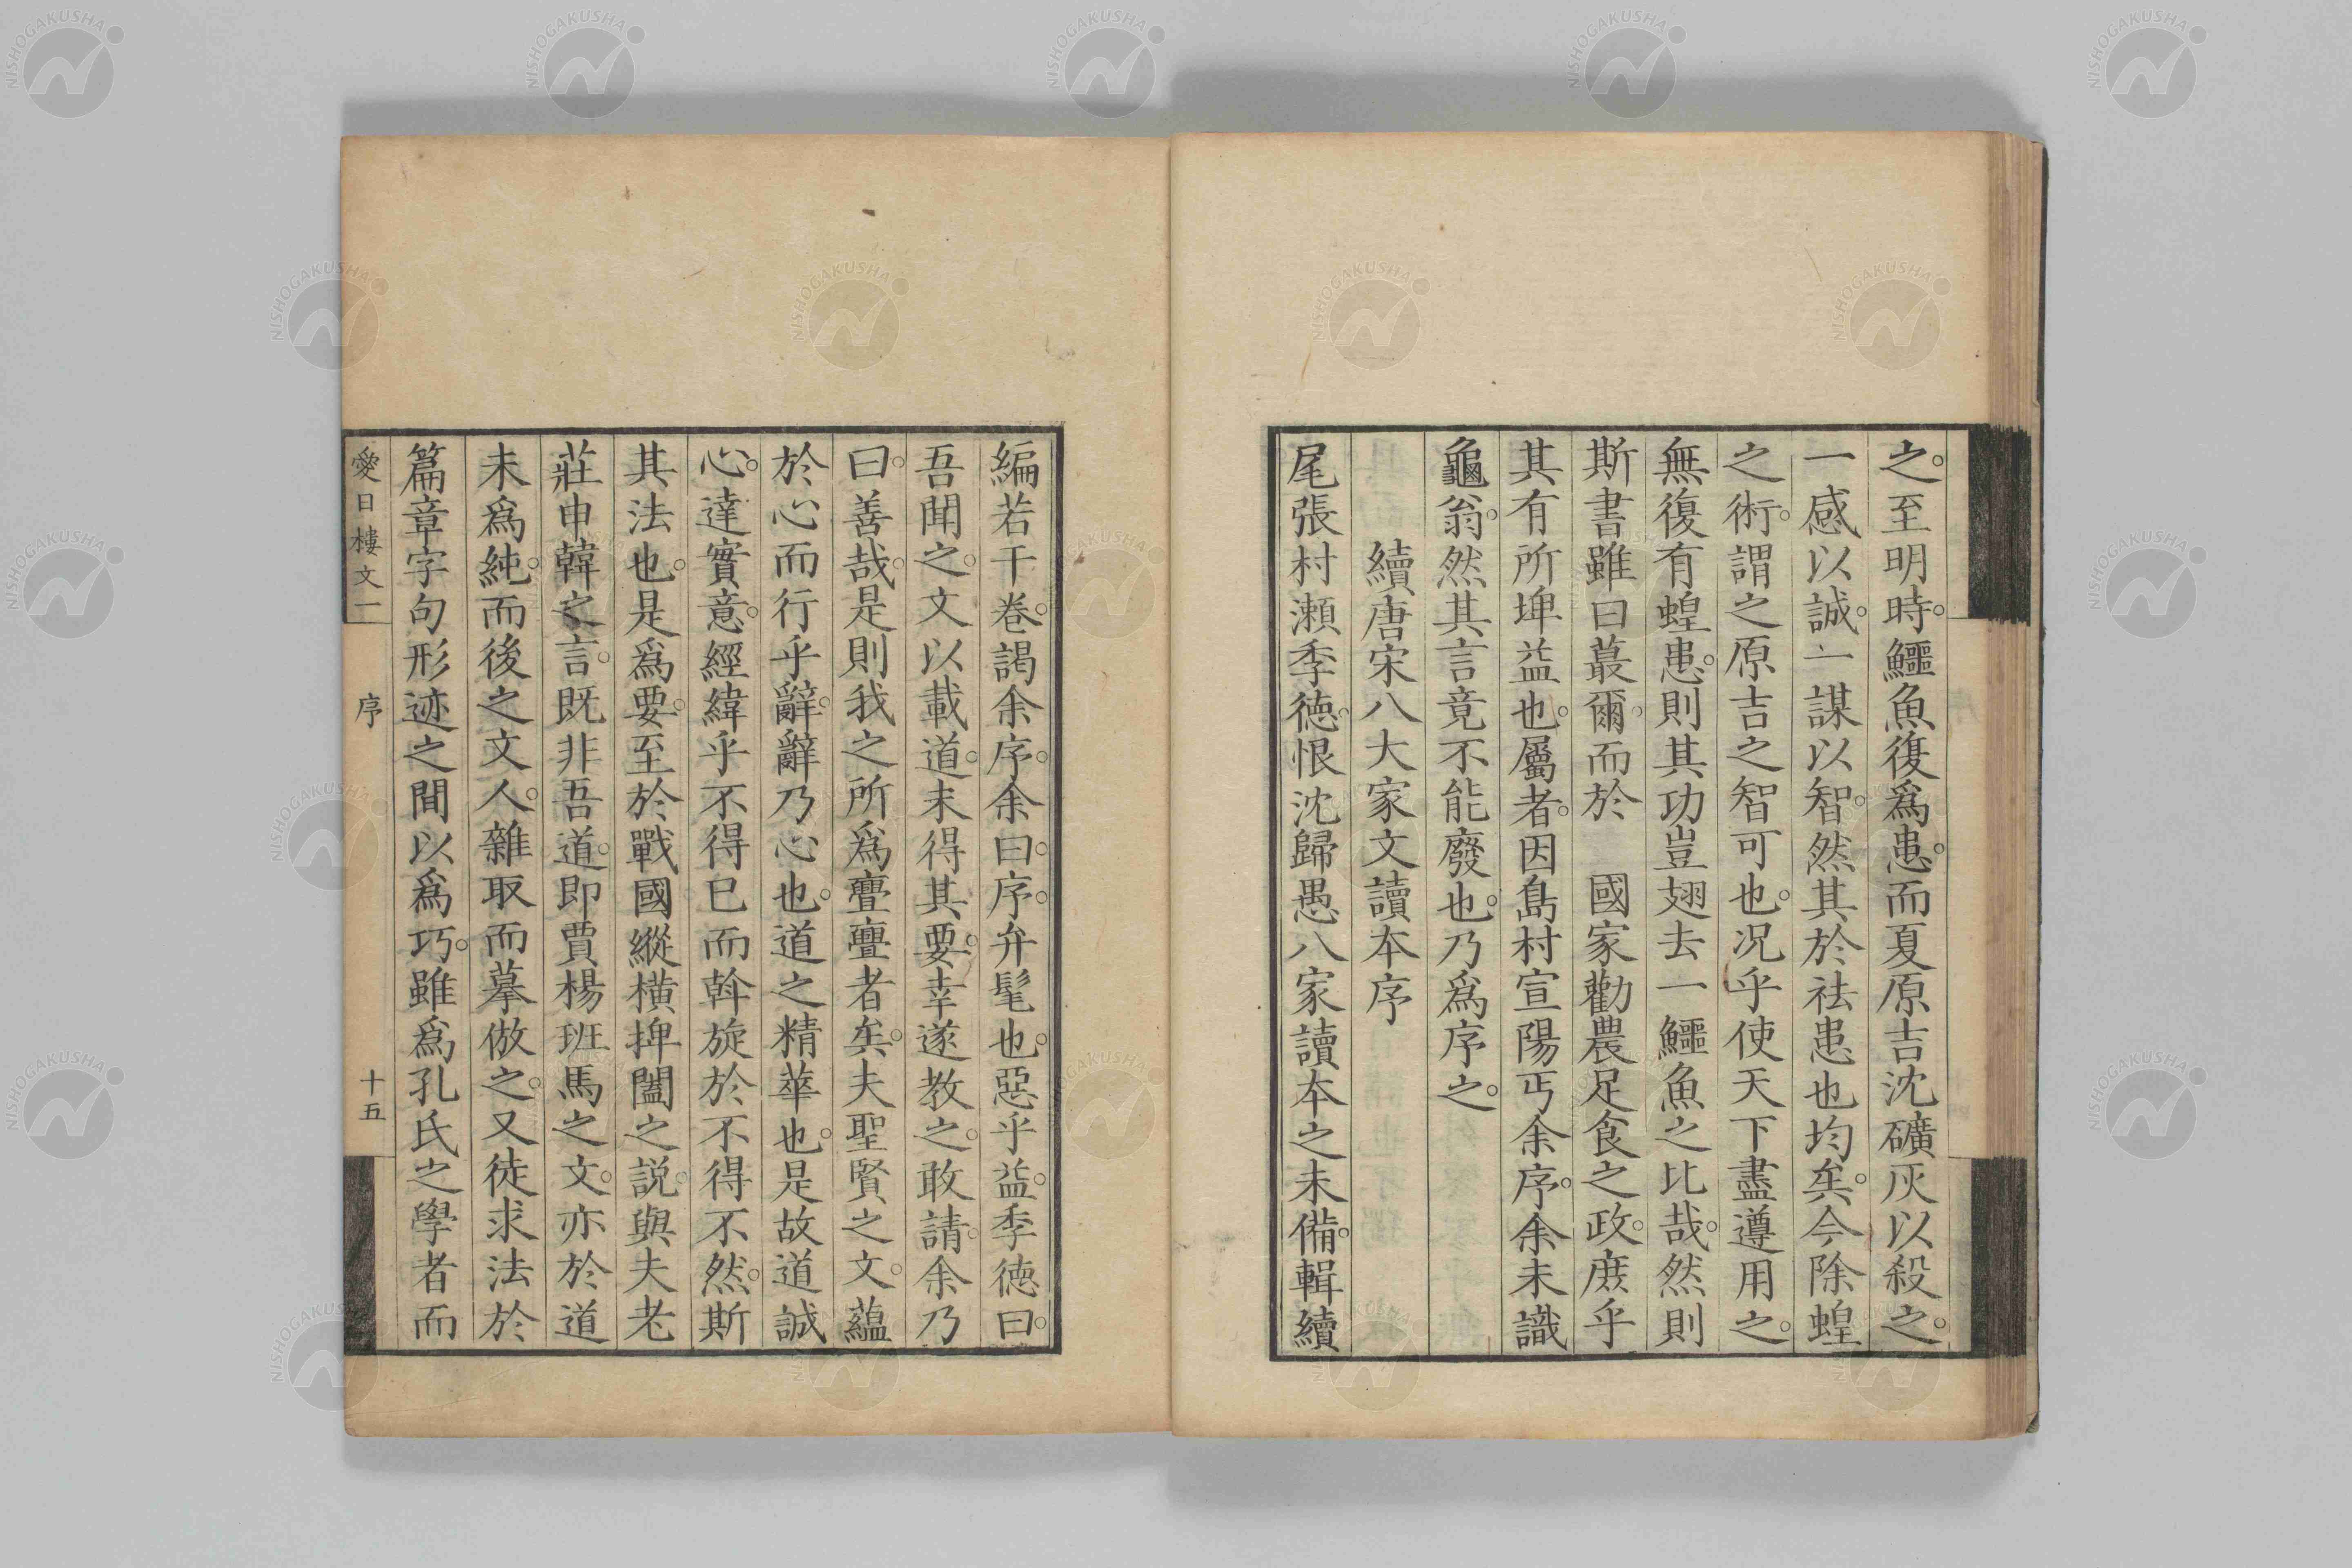 之。至明時。鱷魚復爲患。而夏原吉沈礦灰以殺之。
一感以誠。一謀以智。然其於祛患也均矣。今除蝗
之術。謂之原吉之智可也。况乎使天下盡遵用之。
無復有蝗患。則其功豈翅去一鱷魚之比哉。然則
斯書雖曰蕞爾。而於　國家勸農足食之政。庶乎
其有所埤益也。屬者。因島村宣陽丐余序。余未識
龜翁。然其言竟不能廢也。乃爲序之。
續唐宋八大家文讀本序
尾張村瀬季德。恨沈歸愚八家讀本之未備。輯續
編若干卷。謁余序。余曰。序。弁髦也。惡乎益。季德曰。
吾聞之。文以載道。未得其要。幸遂教之。敢請。余乃
曰。善哉。是則我之所爲亹亹者矣。夫聖賢之文。蘊
於心而行乎辭。辭乃心也。道之精華也。是故道誠
心。達實意。經緯乎不得已而斡旋於不得不然。斯
其法也。是爲要。至於戰國縱橫捭闔之説。與夫老
莊申韓之言。既非吾道。即賈楊班馬之文。亦於道
未爲純。而後之文人。雜取而摹倣之。又徒求法於
篇章字句形迹之間以爲巧。雖爲孔氏之學者而
愛日樓文一
序
十五
NISHOGAKUSHA